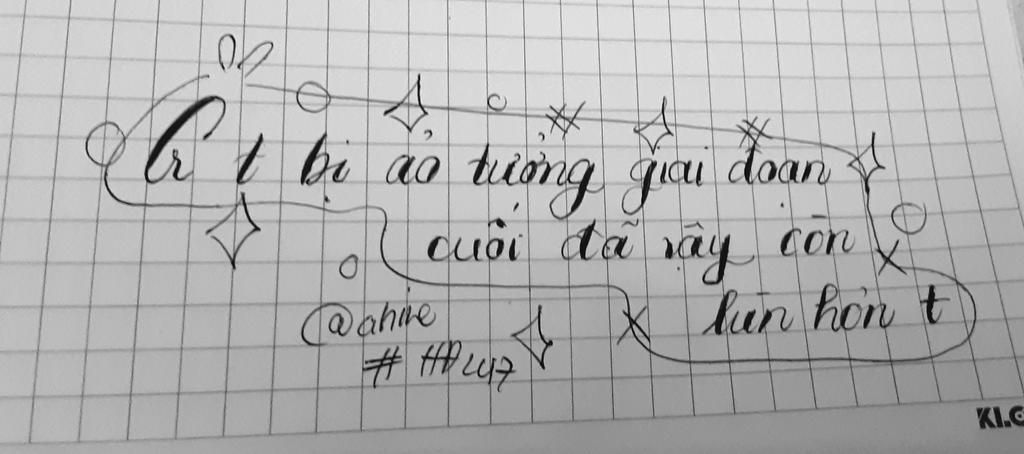 Cr t bị ảo tưởng giai đoạn
cuối đã vậy còn
lùn hơn t
@ahine
# HĐ247
KLO